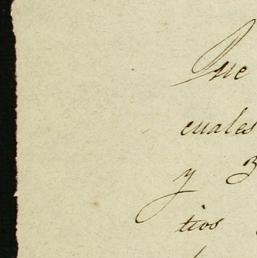 Que
cuales
y 3
tios